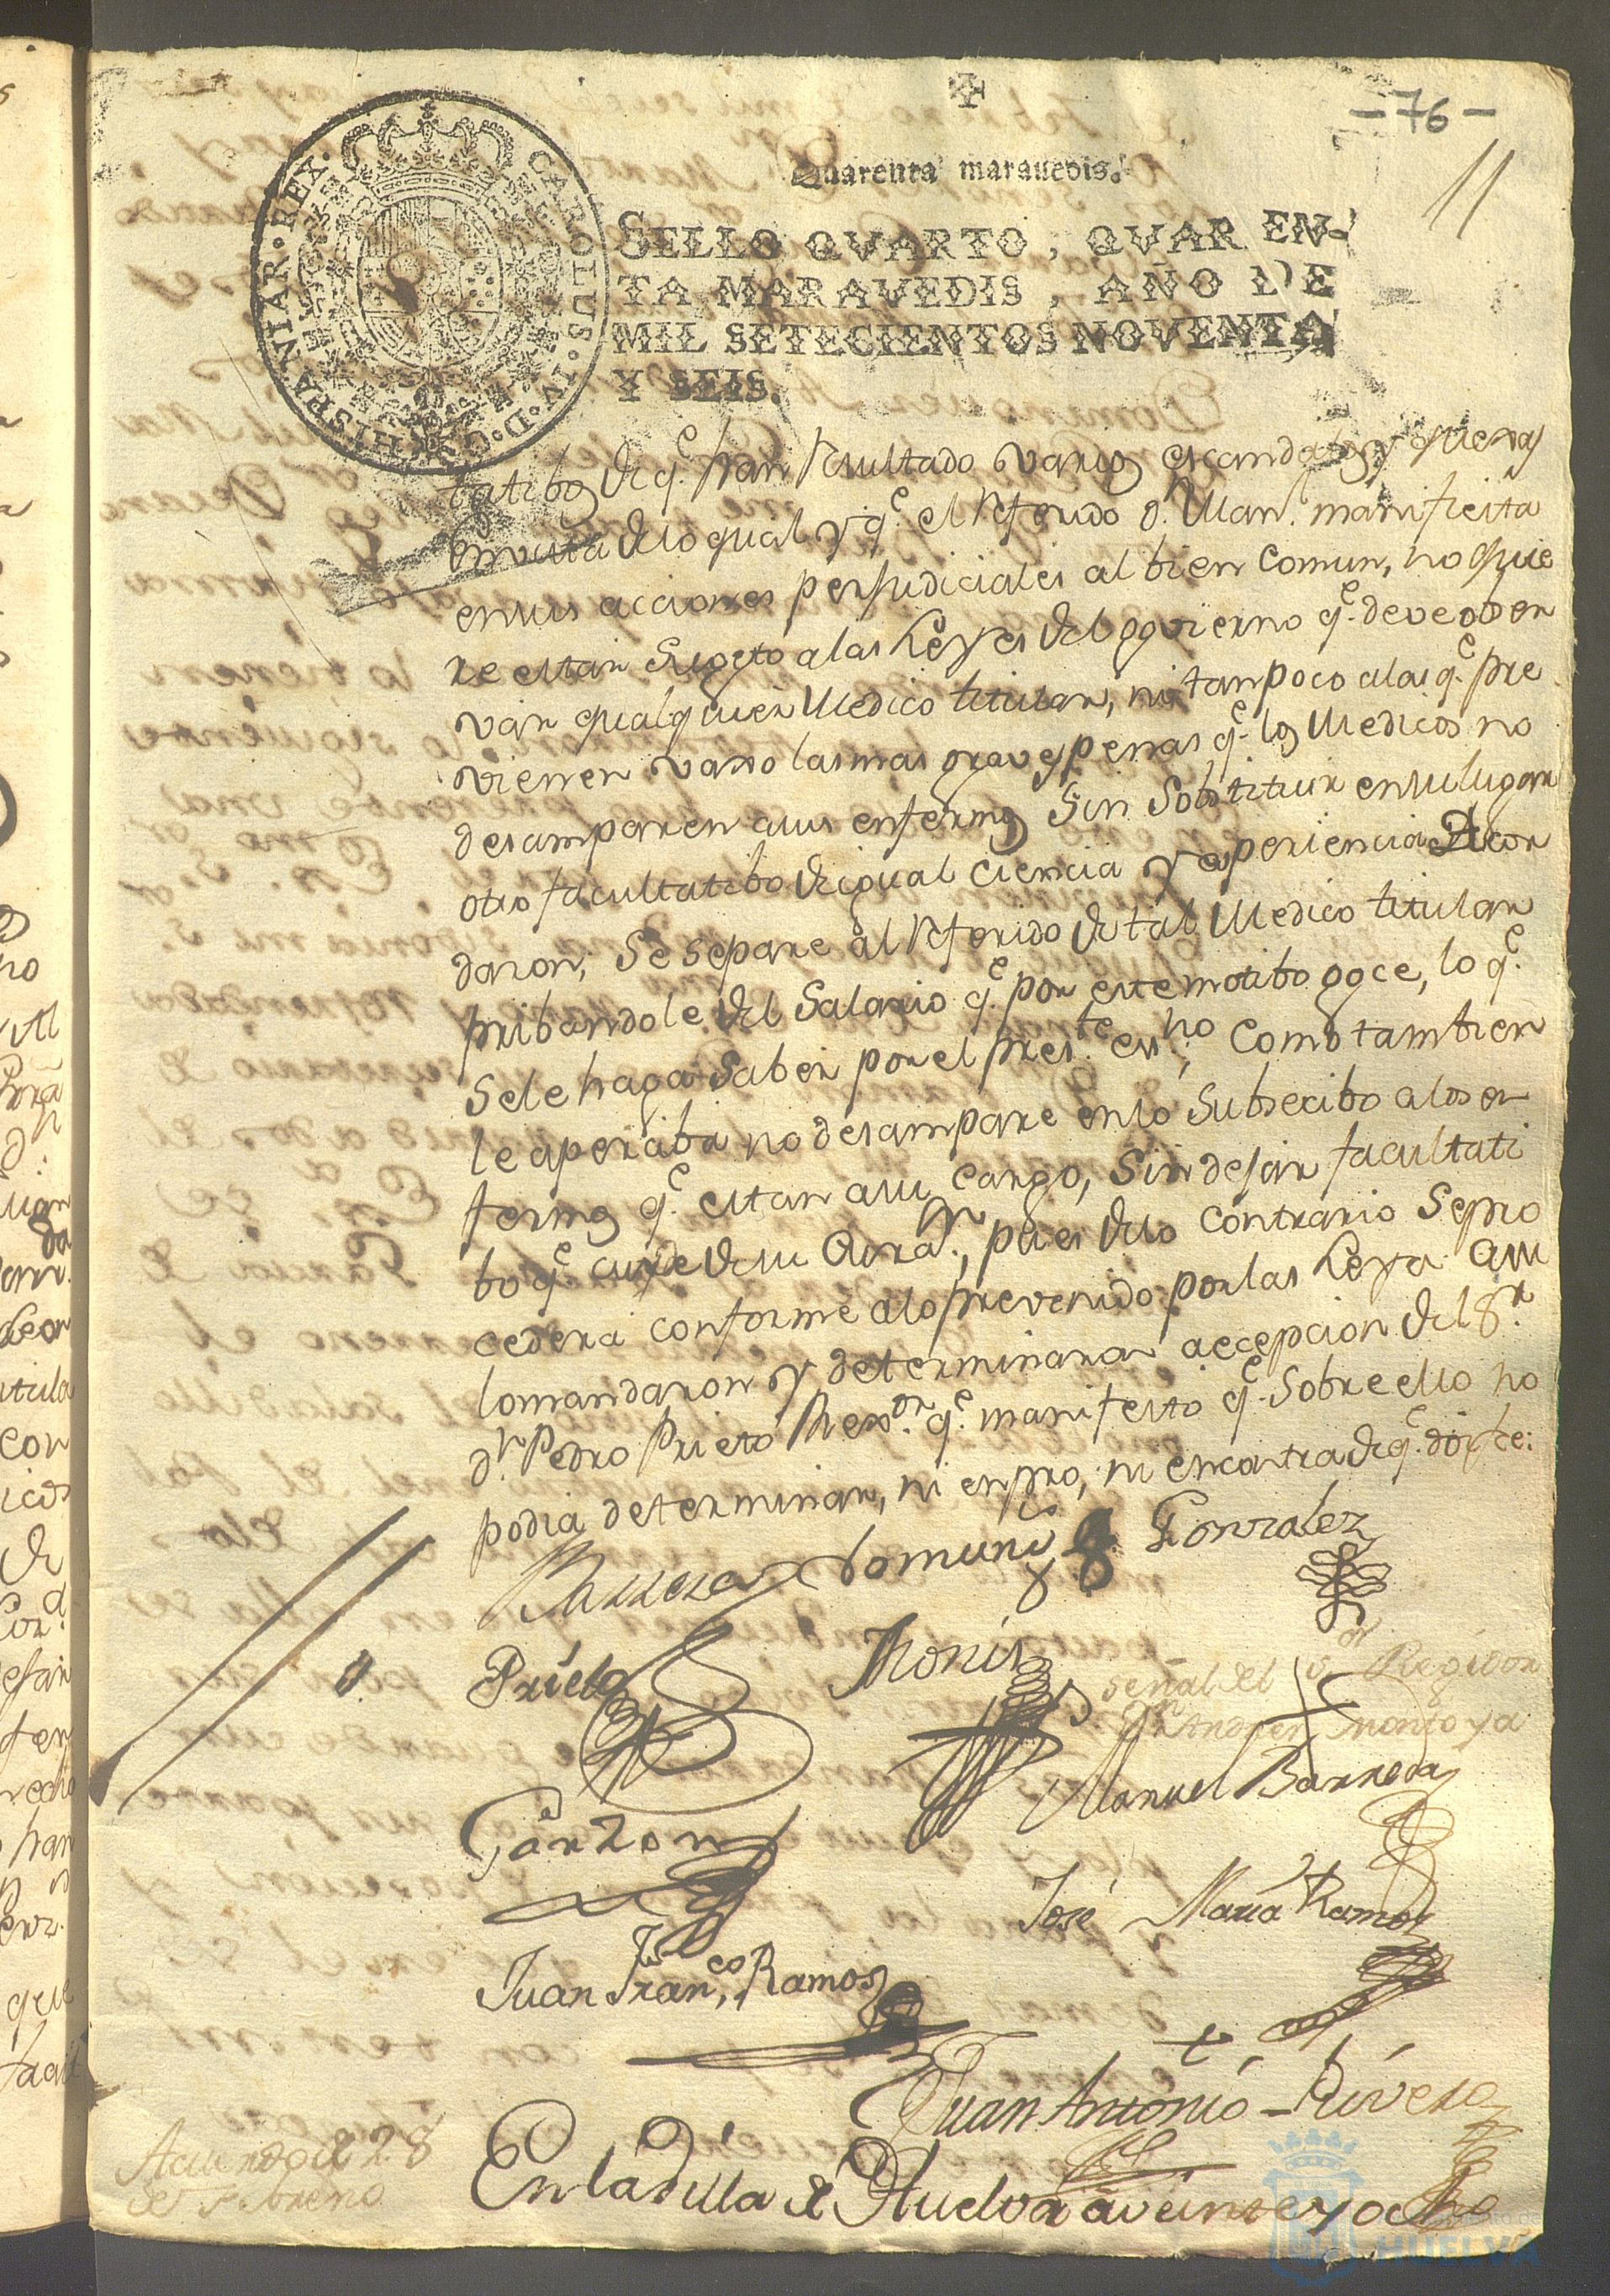 - 76 -
11
Quarenta maravedis.
CAROLUS·IV·D·G·HISPANIAR·REX·
SELLO QVARTO, QVAREN-
TA MARAVEDIS, AÑO DE
MIL SETECIENTOS NOVENTA
Y SEIS.
tatibos de q.e han resultado varios escandalos y quexas
en vista de lo qual y q.e el referido d.n Man. manifiesta
en sus acciones perjudiciales al bien comun, no quie
re estar sugeto a las Leyes del govierno q.e deve obser
var qualquier Medico titular, ni tampoco a las q.e pre
vienen vaxo las mas graves penas q.e los Medicos no
desamparen a sus enfermos sin Sobstituir en su lugar
otro facultatibo de igual ciencia y esperiencia Acor
daron; Se separe al referido de tal Medico titular
pribandole del Salario q.e por este motibo goce, lo q.e
se le haga Saber por el pres.te es.no; Como tambien
le aperciba no desampare en lo Subsecibo a los en
fermos q.e estan a su cargo, Sin dejar facultati
bo q.e cuyde de su Cura.on, pues de lo contrario Se pro
cedera conforme a lo prevenido por las Leyes asi
lo mandaron y determinaron a ecepcion del S.r
d.n Pedro Prieto Rex.or q.e manifesto q.e Sobre ello no
podia determinar, ni en pro, ni en contra de q.e doi fee:
Gonzalez
Prieto
señal del S.or Regidor
d.n Andres Montoya
Manuel Barreda
Garzon
José Maria Ramos
Juan Fran.co Ramos
Juan Antonio Rivera
Acuerdo de 28
de Febrero
En la Villa de Huelva a veinte y ocho
HUELVA